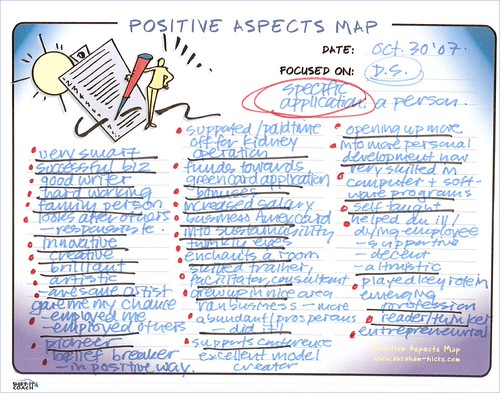 POSITIVE ASPECTS MAP
DATE: Oct. 30 '07.
FOCUSED ON: D.S.
specific
application: a person.
very smart
successful biz
good writer
hard working
family person
looks after others
- responsible.
innovative
creative
brilliant
artistic
awesome artist
gave me my chance
- employed me
- employed others
pioneer
belief breaker
- in positive way.
supported/paid time
off for kidney
operation
funds towards
green card application
bonuses
increased salary
business Amex card
into sustainability
twinkly eyes
enchants a room
skilled trainer,
facilitator, consultant
grew up in nice area
ran business - more
abundant/prosperous
- did it!
supports conference
excellent model
creater
opening up more
into more personal
development now
very skilled in
computer + soft-
ware programs
self taught
helped an ill/
dying employee
- supportive
- decent
- altruistic
played key role in
emerging
profession
reader/thinker
entrepreneurial
Positive Aspects Map
www.abraham-hicks.com
COACH